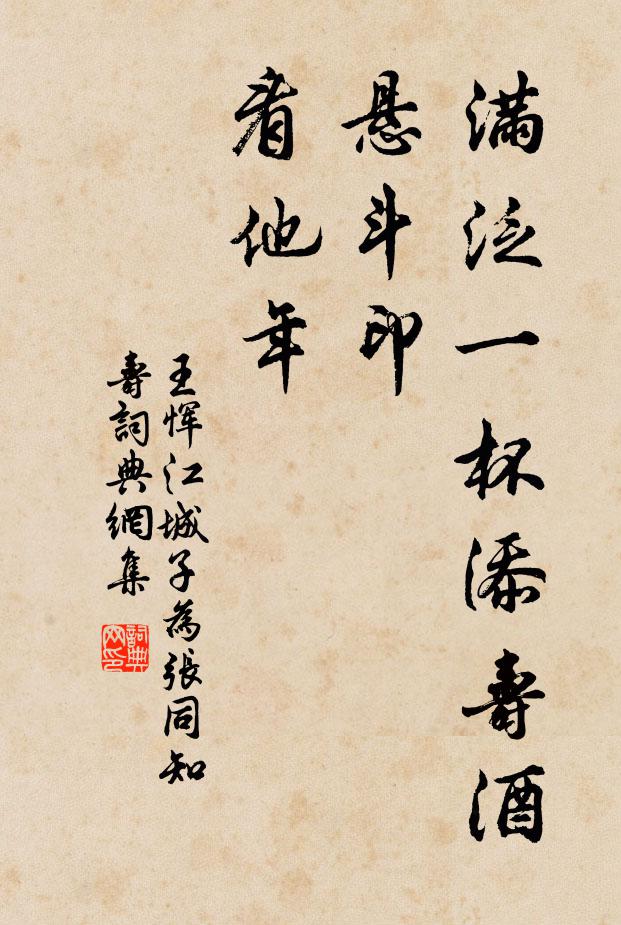 滿泛一杯添壽酒
悬斗印
看他年
王恽江城子為張同知
壽詞典網集
詞典
网印